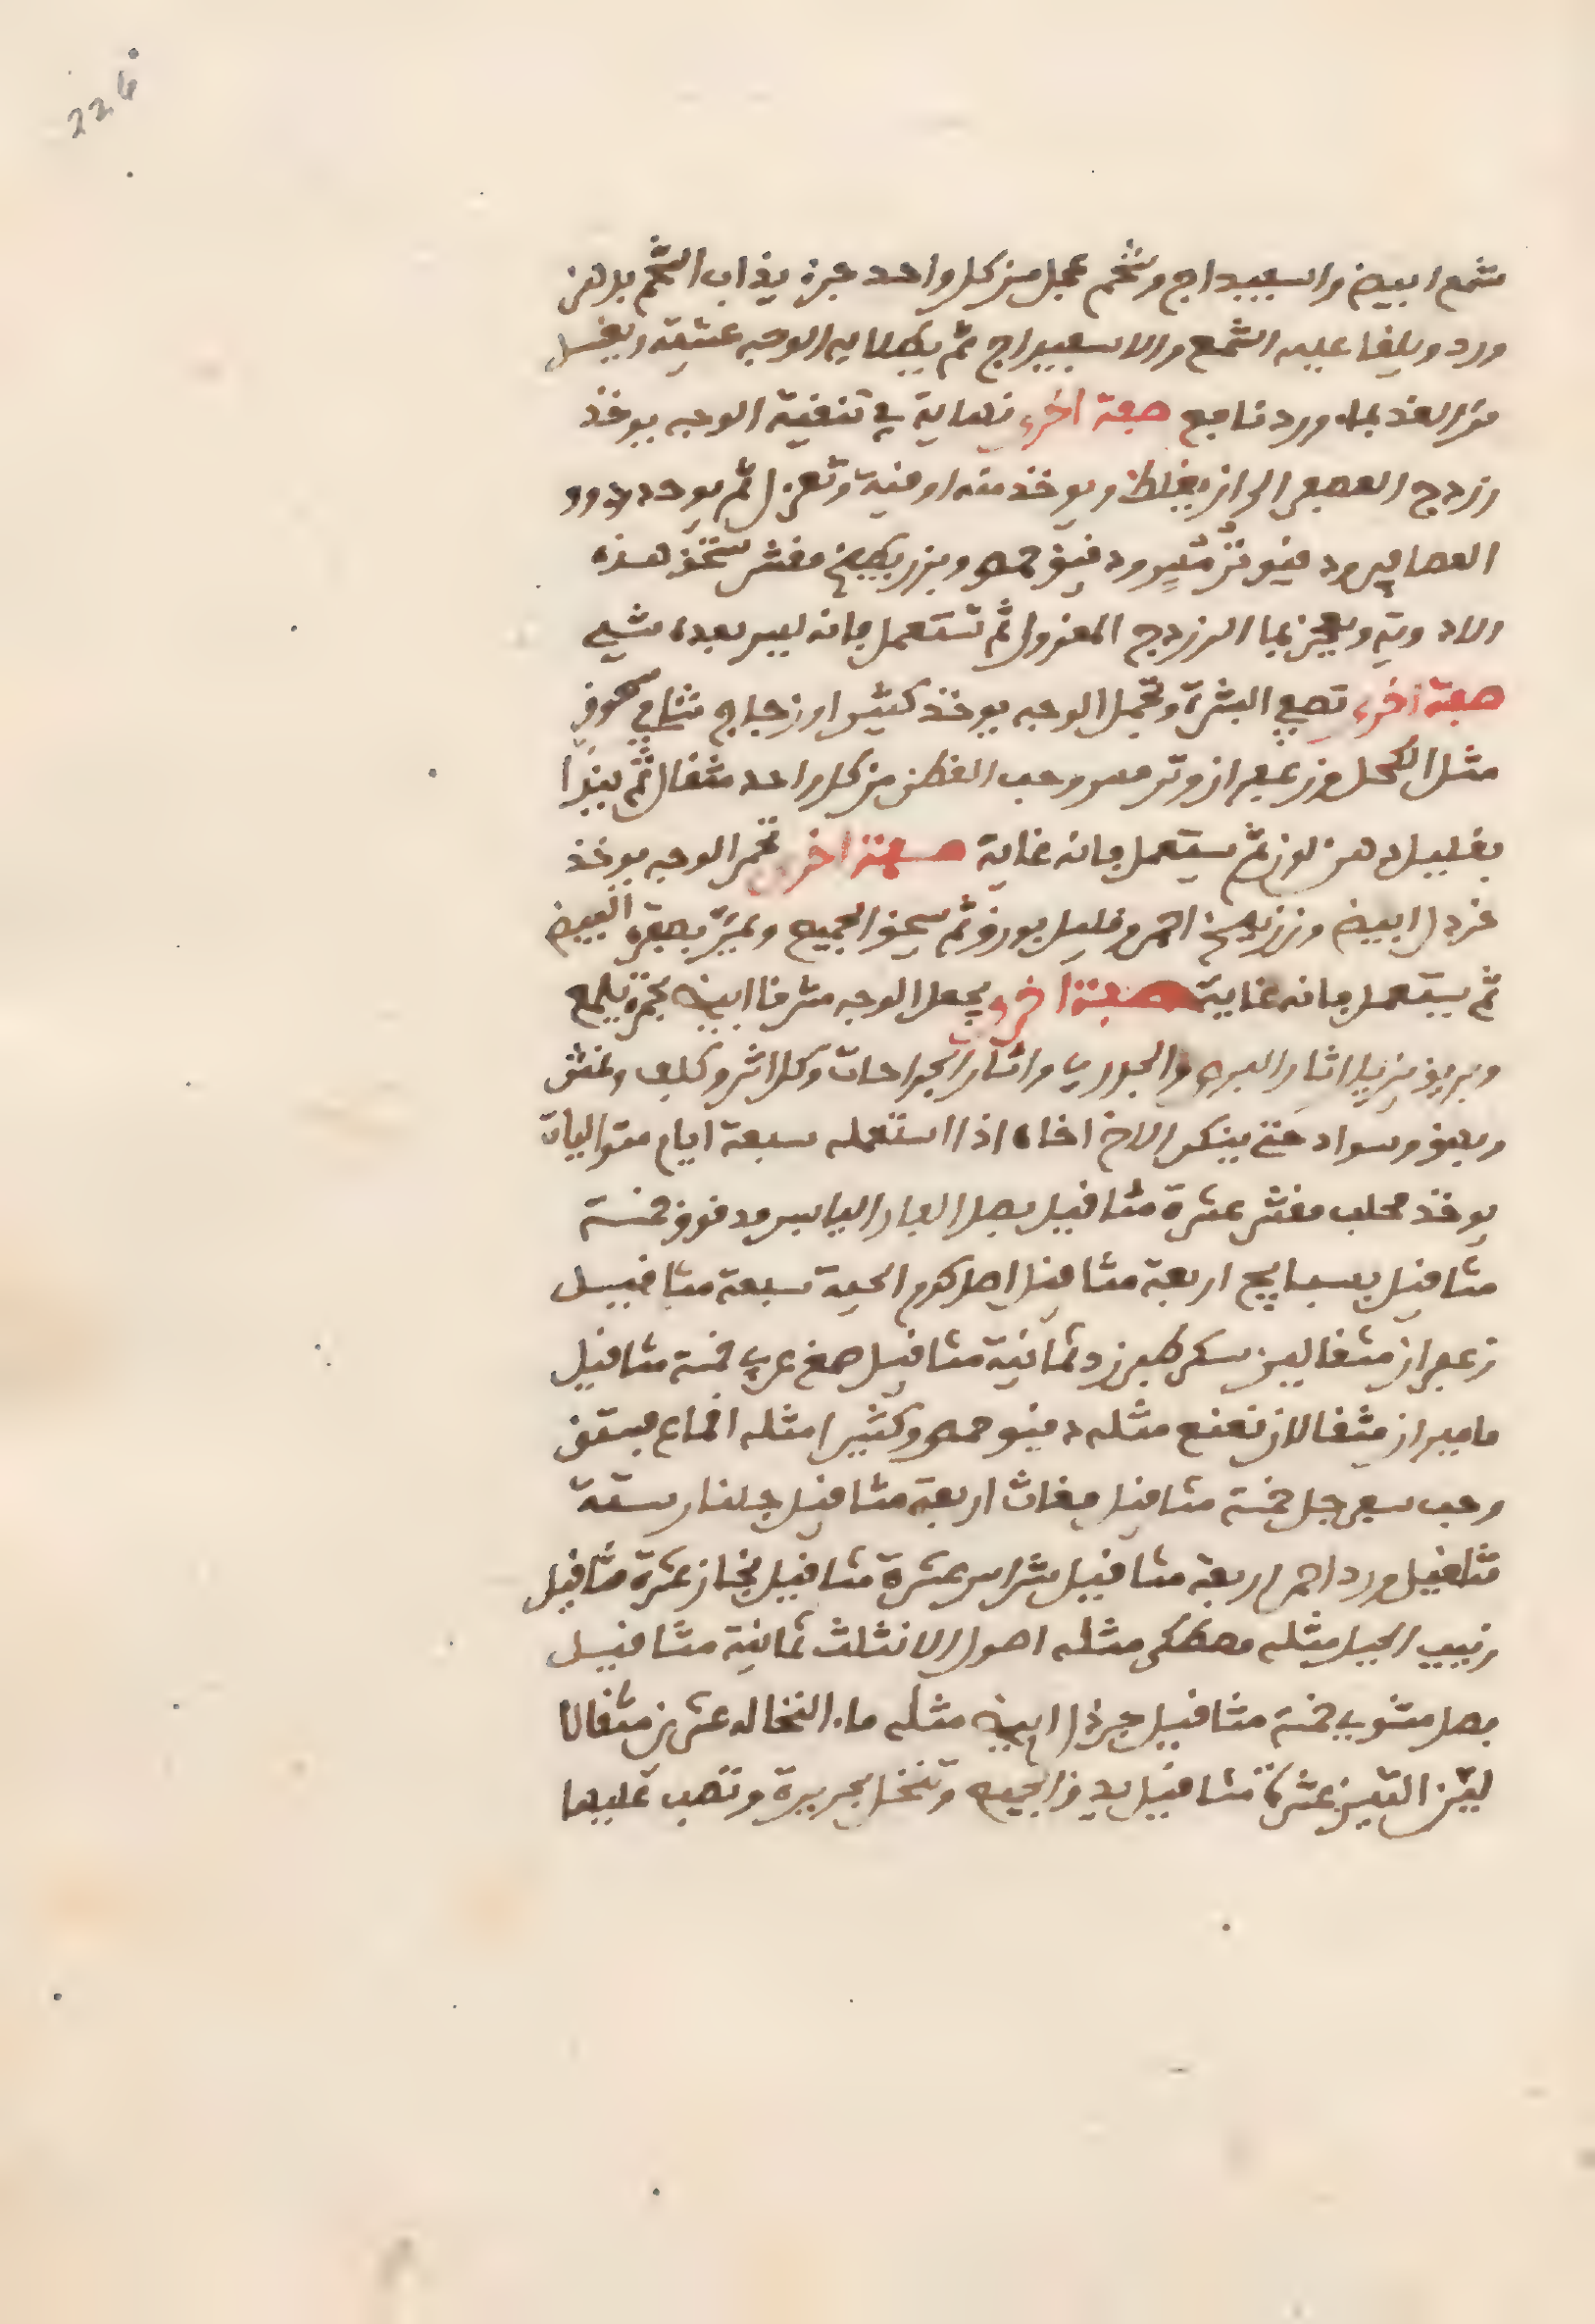 226
شمع ابيض واسبيداج وشحم عجل من كل واحد جزء يذاب الشحم بدهن
ورد ويلقا عليه الشمع والاسبيداج ثم يطلا به الوجه عشية ويغسل
من الغد بماء ورد نافع صفة اخرى نهاية في تنقية الوجه يوخذ
زردج العصفر الى ان يغلظ ويوخذ منه اوقية وتعزل ثم يوخذ
العصافير ودقيق ودقيق حمص وبزر بطيخ مقشر تسحق هذه
الادوية وتعجن بماء الزردج المعزول ثم تستعمل فانه ليس بعده شيء
صفة اخرى تصفي البشرة وتجمل الوجه يوخذ كثيرا وزجاج شامي مسحوق
مثل الكحل وزعفران وترمس وحب القطن من كل واحد مثقال ثم يندا
بقليل دهن لوز ثم يستعمل فانه غاية صفة اخرى تحمر الوجه يوخذ
خردل ابيض وزرنيخ احمر وقليل بورق ثم يسحق الجميع ويميز بصفرة البيض
ثم يستعمل فانه غاية صفة اخرى يجعل الوجه مشرقا ابيض بحمرة يلمع
وبريق يزيل اثار البرص والجدري واثار الجراحات وكل اثر وكلف ونمش
وبهق وسواد حتى ينكر الاخ اخاه اذا استعمله سبعة ايام متواليات
يوخذ محلب مقشر عشرة مثاقيل بصل الفار اليابس مدقوق خمسة
مثاقيل بسبايج اربعة مثاقيل اصل كرم الحية سبعة مثاقيل
زعفران مثقالين سكر طبرزد ثمانية مثاقيل صمغ عربي خمسة مثاقيل
ماميران مثقالان نعنع مثله دقيق حمص وكثيرا مثله اقماع فستق
وحب سفرجل خمسة مثاقيل مغاث اربعة مثاقيل جلنار ستة
مثاقيل ورد احمر اربعة مثاقيل شراس عشرة مثاقيل عشرة مثاقيل
زبيب الجبل مثله مصطكى مثله اصول الانثلث ثمانية مثاقيل
بصل مشوي خمسة مثاقيل خردل ابيض مثله ماء النخاله عشرين مثقالا
لبن التين عشرة مثاقيل يدق الجميع وتنخل بحريرة وتصب عليها